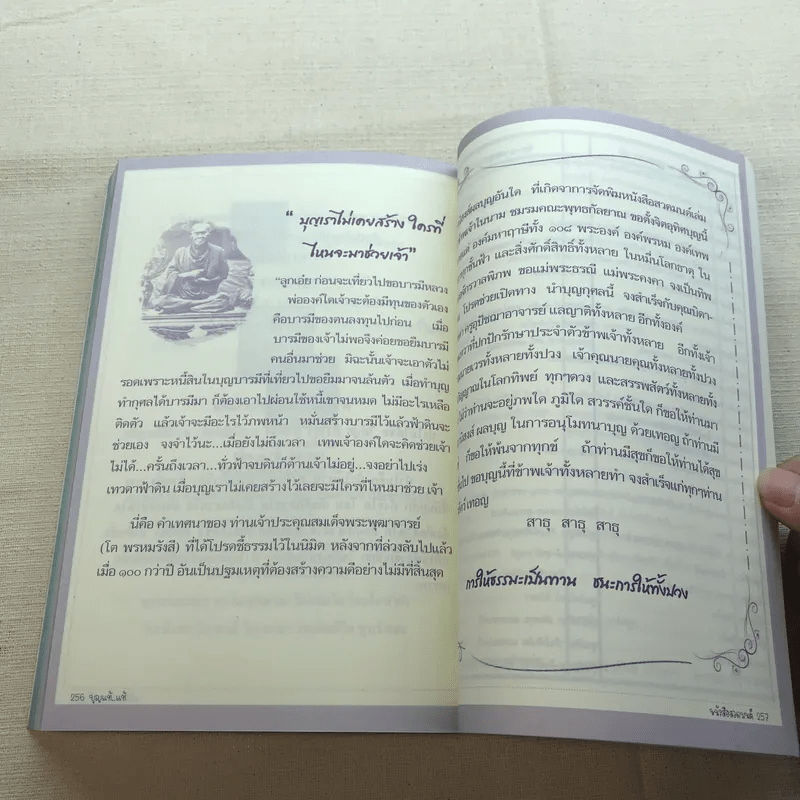 “ บุญเราไม่เคยสร้าง ใครที่
ไหนจะมาช่วยเจ้า”
“ลูกเอ๋ย ก่อนจะเที่ยวไปขอบารมีหลวง
พ่อองค์ใดเจ้าจะต้องมีทุนของตัวเอง
คือบารมีของตนลงทุนไปก่อน เมื่อ
บารมีของเจ้าไม่พอจึงค่อยขอยืมบารมี
คนอื่นมาช่วย มิฉะนั้นเจ้าจะเอาตัวไม่
รอดเพราะหนี้สินในบุญบารมีที่เที่ยวไปขอยืมมาจนล้นตัว เมื่อทำบุญ
ทำกุศลได้บารมีมา ก็ต้องเอาไปผ่อนใช้หนี้เขาจนหมด ไม่มีอะไรเหลือ
ติดตัว แล้วเจ้าจะมีอะไรไว้ภพหน้า หมั่นสร้างบารมีไว้แล้วฟ้าดินจะ
ช่วยเอง จงจำไว้นะ...เมื่อยังไม่ถึงเวลา เทพเจ้าองค์ใดจะคิดช่วยเจ้า
ไม่ได้...ครั้นถึงเวลา...ทั่วฟ้าจบดินก็ต้านเจ้าไม่อยู่...จงอย่าไปเร่ง
เทวดาฟ้าดิน เมื่อบุญเราไม่เคยสร้างไว้เลยจะมีใครที่ไหนมาช่วย เจ้า
นี่คือ คำเทศนาของ ท่านเจ้าประคุณสมเด็จพระพุฒาจารย์
(โต พรหมรังสี) ที่ได้โปรดชี้ธรรมไว้ในนิมิต หลังจากที่ล่วงลับไปแล้ว
เมื่อ ๑๐๐ กว่าปี อันเป็นปฐมเหตุที่ต้องสร้างความดีอย่างไม่มีที่สิ้นสุด
256 บุญแท้..แท้
ผลบุญอันใด ที่เกิดจาการจัดพิมหนังสือสวดมนต์เล่ม
เจ้าในนาม ชมรมคณะพุทธกัลยาณ ขอตั้งจิตอุทิศบุญนี้
องค์มหาฤาษีทั้ง ๑๐๘ พระองค์ องค์พรหม องค์เทพ
ทุกชั้นฟ้า และสิ่งศักดิ์สิทธิ์ทั้งหลาย ในหมื่นโลกธาตุ ใน
จักรวาลพิภพ ขอแม่พระธรณี แม่พระคงคา จงเป็นทิพ
โปรดช่วยเปิดทาง นำบุญกุศลนี้ จงสำเร็จกับคุณบิดา-
ครูอุปัชฌาอาจารย์ แลญาติทั้งหลาย อีกทั้งองค์
ที่ปกปักรักษาประจำตัวข้าพเจ้าทั้งหลาย อีกทั้งเจ้า
นายเวรทั้งหลายทั้งปวง เจ้าคุณนายคุณทั้งหลายทั้งปวง
วิญญาณในโลกทิพย์ ทุกๆดวง และสรรพสัตว์ทั้งหลายทั้ง
ว่าท่านจะอยู่ภพใด ภูมิใด สวรรค์ชั้นใด ก็ขอให้ท่านมา
ผลบุญ ในการอนุโมทนาบุญ ด้วยเทอญ ถ้าท่านมี
ก็ขอให้พ้นจากทุกข์ ถ้าท่านมีสุขก็ขอให้ท่านได้สุข
ไป ขอบุญนี้ที่ข้าพเจ้าทั้งหลายทำ จงสำเร็จแก่ทุกๆท่าน
เทอญ
สาธุ สาธุ สาธุ
การให้ธรรมะเป็นทาน ชนะการให้ทั้งปวง
หนังสือสวดมนต์ 257